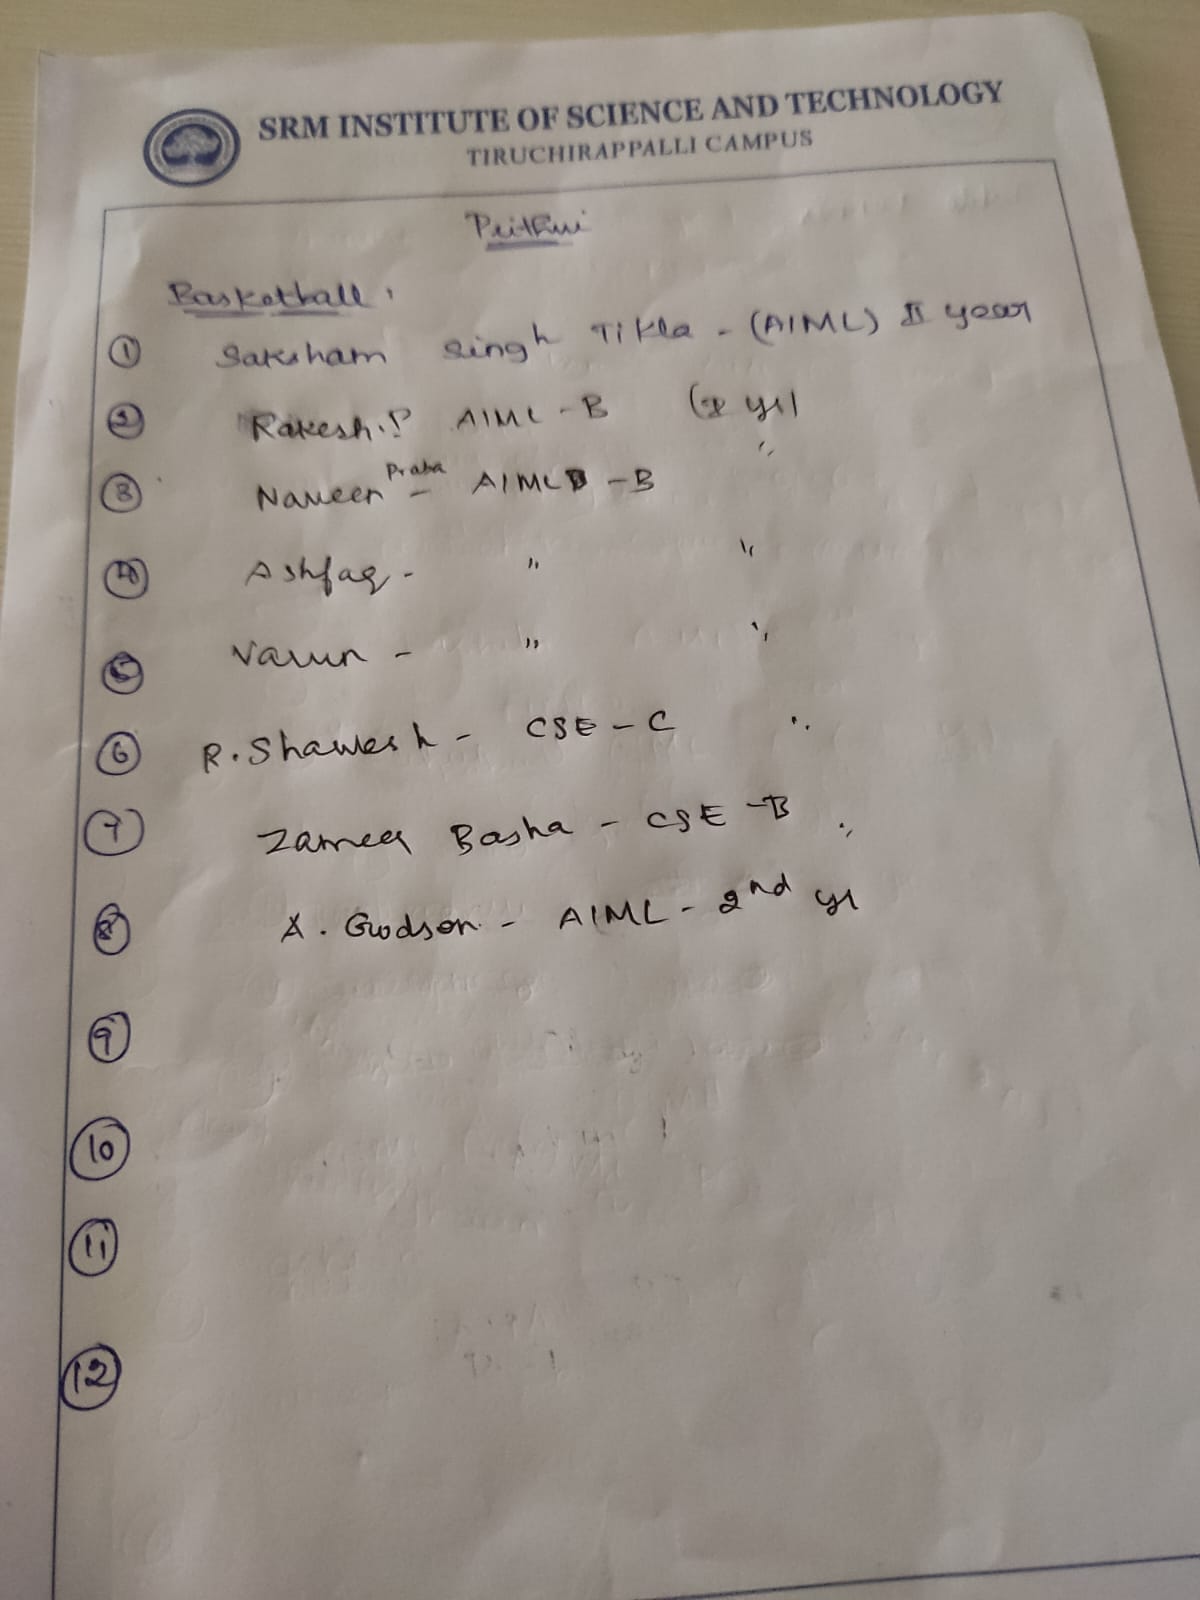 SRM INSTITUTE OF SCIENCE AND TECHNOLOGY
TIRUCHIRAPPALLI CAMPUS
Prithvi
Basketball :
① Saksham Singh Tikla - (AIML) II year
② Rakesh.P AIML - B (I yr)
③ Naveen Praba - AIML - B "
④ Ashfaq - " "
⑤ Varun - " "
⑥ R. Sharvesh - CSE - C "
⑦ Zameer Basha - CSE - B "
⑧ A. Godson - AIML - 2nd yr
⑨
⑩
⑪
⑫